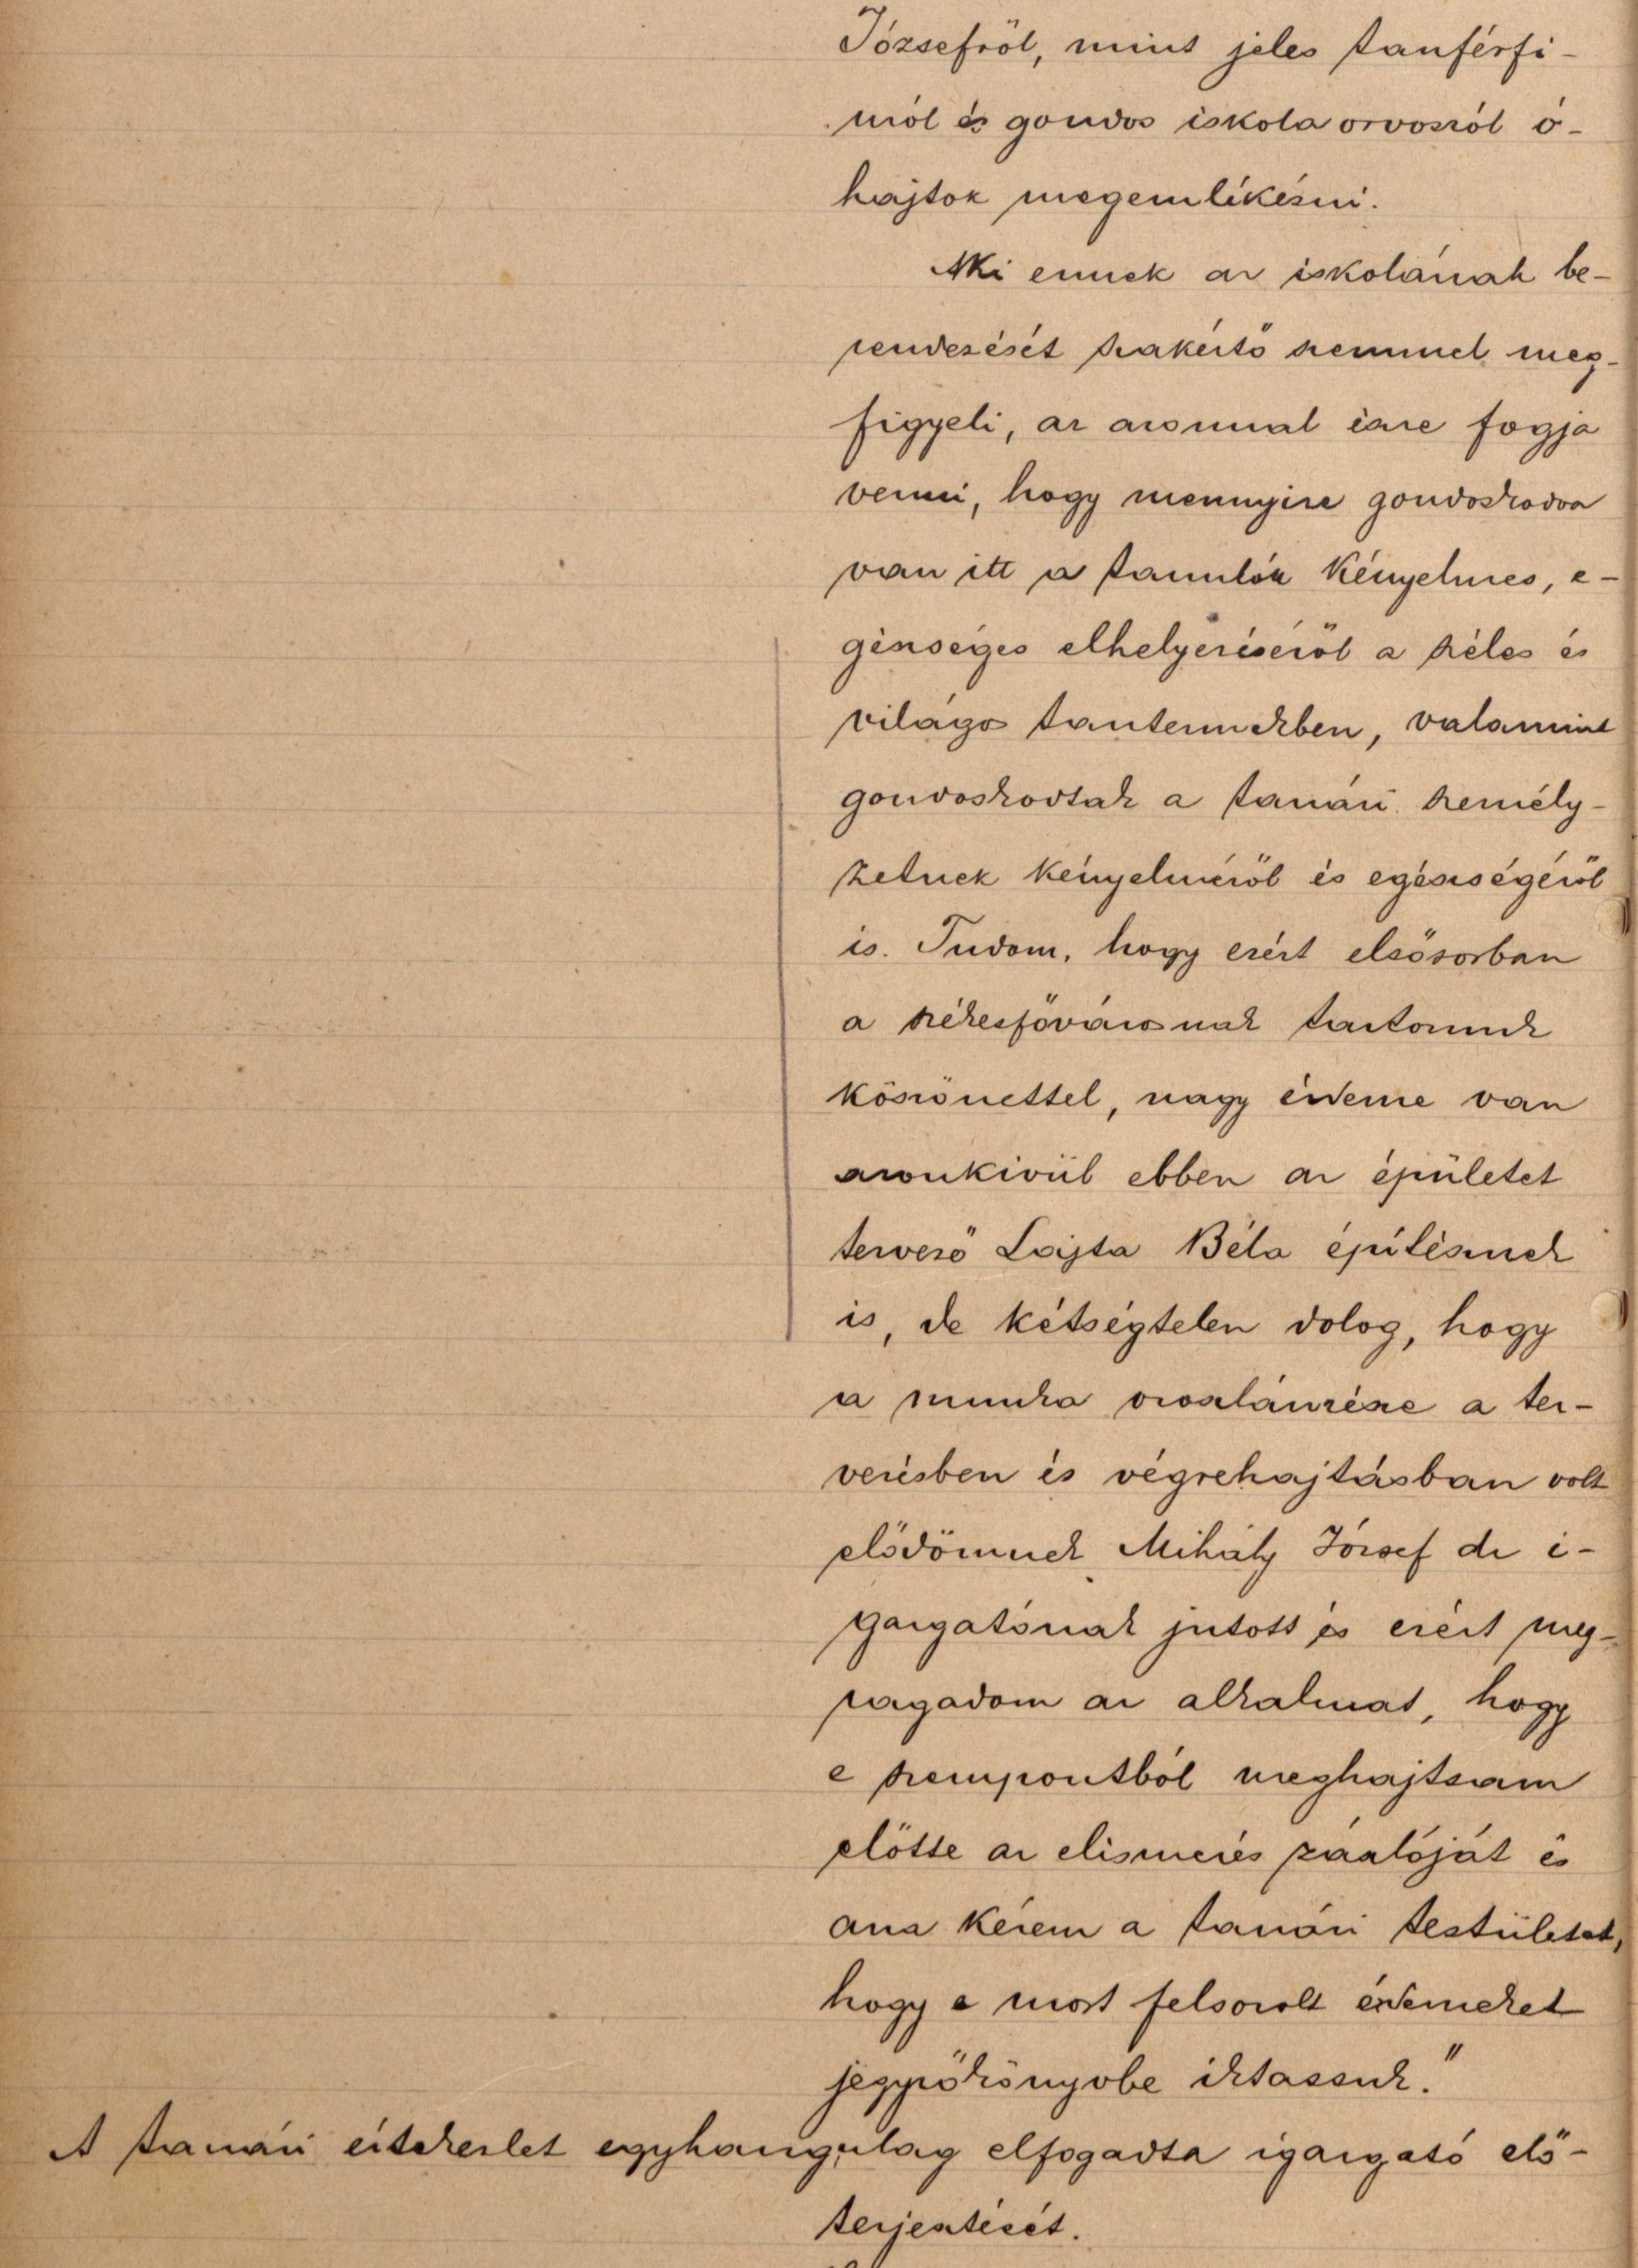 Józsefről, mint jeles tanférfi-
úról és gondos iskola orvosról ó-
hajtok megemlékézni.
Aki ennek az iskolának be-
rendezését szakértő szemmel meg-
figyeli, az azonnal észre fogja
venni, hogy mennyire gondoskodva
van itt a tanulók kényelmes, e-
gészséges elhelyezéséről a széles és
világos tantermekben, valamint
gondoskodtak a tanári személy-
zetnek kényelméről és egészségéről
is. Tudom, hogy ezért elsősorban
a székesfővárosnak tartozunk
köszönettel, nagy érdeme van
azonkivül ebben az épületet
tervező Lajta Béla építésznek
is, de kétségtelen dolog, hogy
a munka oroszlánrésze a ter-
vezésben és végrehajtásban volt
elődömnek Mihály József dr i-
gazgatónak jutott és ezért meg-
ragadom az alkalmat, hogy
e szempontból meghajtsam
előtte az elismerés zászlóját és
arra kérem a tanári testületet,
hogy e most felsorolt érdemeket
jegyzőkönyvbe iktassuk."
A tanári értekezlet egyhangulag elfogadta igazgató elő-
terjesztését.